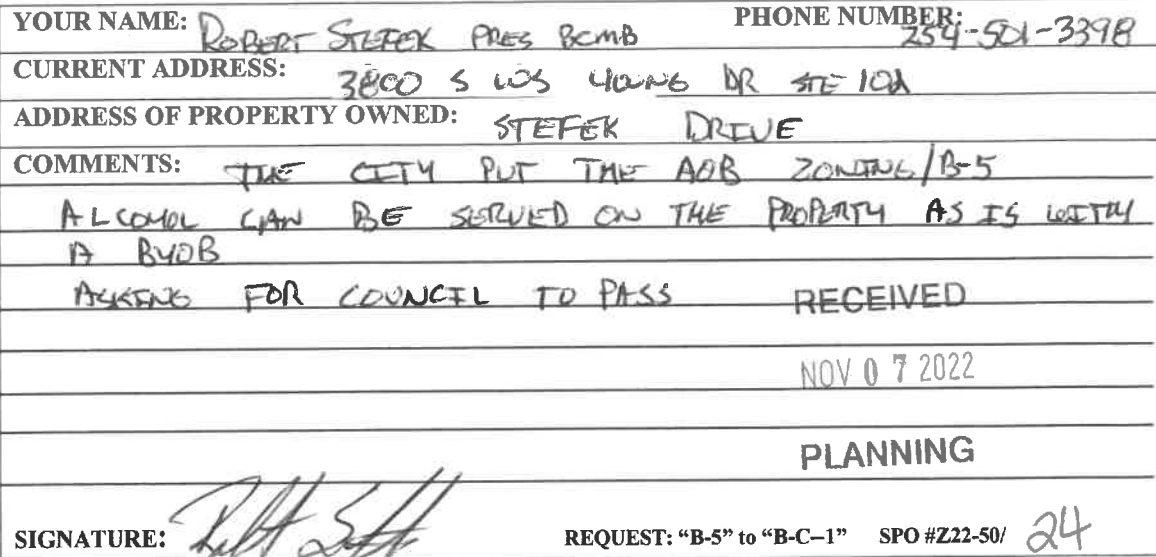 YOUR NAME: ROBERT STEFEK PRES BCMB PHONE NUMBER: 254-501-3398
CURRENT ADDRESS: 3800 S WS YOUNG DR STE 101
ADDRESS OF PROPERTY OWNED: STEFEK DRIVE
COMMENTS: THE CITY PUT THE AOB ZONING/B-5
ALCOHOL CAN BE SERVED ON THE PROPERTY AS IS WITH
A BYOB
ASKING FOR COUNCIL TO PASS
RECEIVED
NOV 07 2022
PLANNING
SIGNATURE: REQUEST: "B-5" to "B-C-1" SPO #Z22-50/ 24